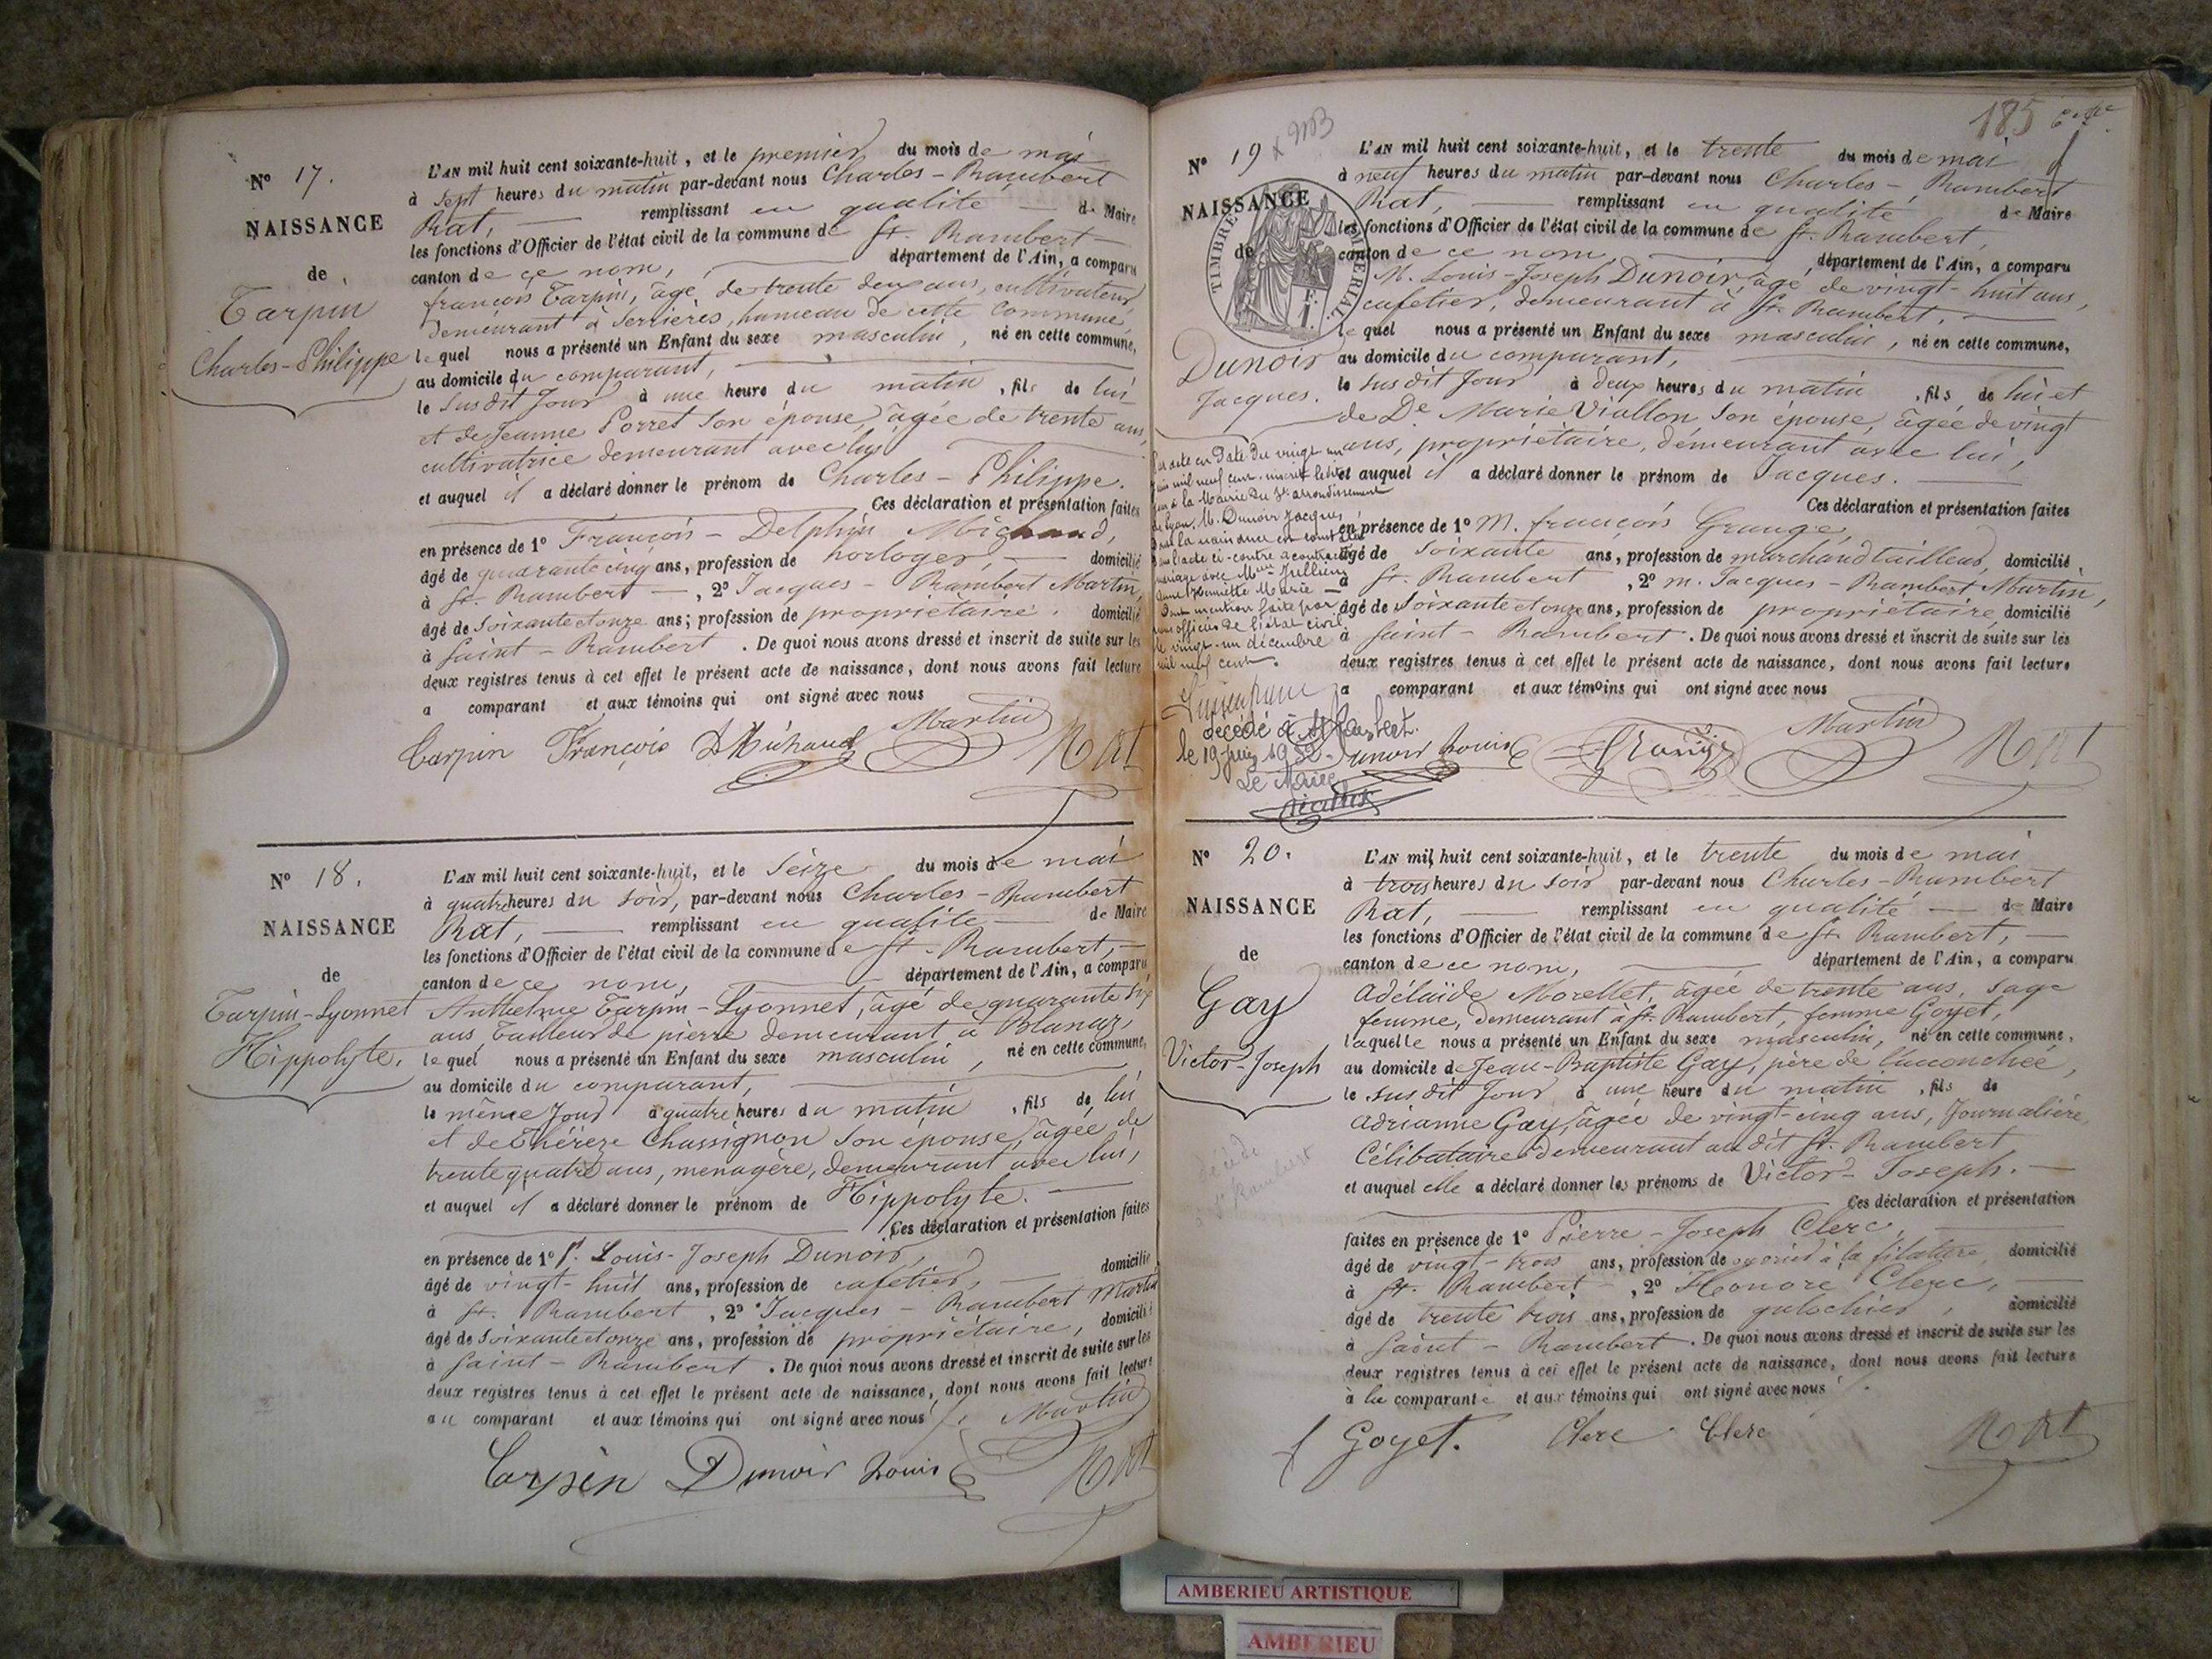 N° 17.
NAISSANCE
de
Tarpin
Charles-Philippe
L'AN mil huit cent soixante-huit, et le premier du mois de mai
à sept heures du matin par-devant nous Charles-Rambert
Rat, remplissant en qualité de Maire
les fonctions d'Officier de l'état civil de la commune de St. Rambert
canton de ce nom, département de l'Ain, a comparu
françois Tarpin, âgé de trente deux ans, cultivateur
demeurant à Serrières, hameau de cette Commune,
lequel nous a présenté un Enfant du sexe masculin, né en cette commune,
au domicile du comparant,
le susdit jour à une heure du matin, fils de lui
et de Jeanne Porret son épouse, âgée de trente ans,
cultivatrice demeurant avec lui
et auquel il a déclaré donner le prénom de Charles-Philippe.
Ces déclaration et présentation faites
en présence de 1° François-Delphin Michaud,
âgé de quarante cinq ans, profession de horloger, domicilié
à St. Rambert, 2° Jacques-Rambert Martin,
âgé de soixante et onze ans; profession de propriétaire. domicilié
à Saint-Rambert. De quoi nous avons dressé et inscrit de suite sur les
deux registres tenus à cet effet le présent acte de naissance, dont nous avons fait lecture
a comparant et aux témoins qui ont signé avec nous
Tarpin François D Michaud Martin Rat
N° 18.
NAISSANCE
de
Tarpin-Lyonnet
Hippolyte.
L'AN mil huit cent soixante-huit, et le seize du mois de mai
à quatre heures du soir, par-devant nous Charles-Rambert
Rat, remplissant en qualité de Maire
les fonctions d'Officier de l'état civil de la commune de St. Rambert,
canton de ce nom, département de l'Ain, a comparu
Anthelme Tarpin-Lyonnet, âgé de quarante six
ans, tailleur de pierre demeurant à Blanaz,
lequel nous a présenté un Enfant du sexe masculin, né en cette commune,
au domicile du comparant,
le même jour à quatre heures du matin, fils de lui
et de Thérèze Chassignon son épouse, âgée de
trente quatre ans, menagère, demeurant avec lui,
et auquel il a déclaré donner le prénom de Hippolyte.
Ces déclaration et présentation faites
en présence de 1° Louis-Joseph Dunoir,
âgé de vingt-huit ans, profession de cafetier, domicilié
à St. Rambert, 2° Jacques-Rambert Martin
âgé de soixante et onze ans, profession de propriétaire, domicilié
à Saint-Rambert. De quoi nous avons dressé et inscrit de suite sur les
deux registres tenus à cet effet le présent acte de naissance, dont nous avons fait lecture
au comparant et aux témoins qui ont signé avec nous
Martin
Tarpin Dunoir Louis Rat
185
N° 19
NAISSANCE
de
TIMBRE IMPERIAL
Dunoir
Jacques.
L'AN mil huit cent soixante-huit, et le trente du mois de mai
à neuf heures du matin par-devant nous Charles-Rambert
Rat, remplissant en qualité de Maire
les fonctions d'Officier de l'état civil de la commune de St. Rambert,
canton de ce nom, département de l'Ain, a comparu
M. Louis-Joseph Dunoir, âgé de vingt-huit ans,
cafetier, demeurant à St. Rambert,
lequel nous a présenté un Enfant du sexe masculin, né en cette commune,
au domicile du comparant,
le susdit jour à deux heures du matin, fils de lui et
de De Marie Viallon son épouse, âgée de vingt
ans, propriétaire, demeurant avec lui,
et auquel il a déclaré donner le prénom de Jacques.
Ces déclaration et présentation faites
en présence de 1° M. françois Grange,
âgé de soixante ans, profession de marchand tailleur, domicilié
à St. Rambert, 2° m. Jacques-Rambert Martin,
âgé de soixante et onze ans, profession de propriétaire, domicilié
à Saint-Rambert. De quoi nous avons dressé et inscrit de suite sur les
deux registres tenus à cet effet le présent acte de naissance, dont nous avons fait lecture
a comparant et aux témoins qui ont signé avec nous
Dunoir Louis Grange Martin Rat
Par acte en date du vingt un
mil neuf cent inscrit
à la Mairie du arrondissement
de Lyon, M. Dunoir Jacques,
dont la naissance est constatée
dans l'acte ci-contre a contracté
mariage avec Melle Jullien
Henriette Marie
Dont mention faite par
nous officier de l'état civil
le vingt-un décembre
mil neuf cent.
décédé à St Rambert
le 19 juin 1952
Le Maire
N° 20.
NAISSANCE
de
Gay
Victor-Joseph
décédé
St Rambert
L'AN mil huit cent soixante-huit, et le trente du mois de mai
à trois heures du soir par-devant nous Charles-Rambert
Rat, remplissant en qualité de Maire
les fonctions d'Officier de l'état civil de la commune de St. Rambert,
canton de ce nom, département de l'Ain, a comparu
Adélaïde Morellet, âgée de trente ans, sage
femme, demeurant à St. Rambert, femme Goyet,
laquelle nous a présenté un Enfant du sexe masculin, né en cette commune,
au domicile de Jean-Baptiste Gay, père de l'accouchée,
le susdit jour à une heure du matin, fils de
Adrianne Gay, âgée de vingt-cinq ans, Journalière,
Célibataire demeurant audit St. Rambert
et auquel elle a déclaré donner les prénoms de Victor-Joseph.
Ces déclaration et présentation
faites en présence de 1° Pierre-Joseph Clerc,
âgé de vingt-trois ans, profession de ouvrier à la filature, domicilié
à St. Rambert, 2° Honoré Clerc,
âgé de trente trois ans, profession de galochier, domicilié
à Saint-Rambert. De quoi nous avons dressé et inscrit de suite sur les
deux registres tenus à cet effet le présent acte de naissance, dont nous avons fait lecture
à la comparante et aux témoins qui ont signé avec nous
f Goyet. Clerc Clerc Rat
AMBERIEU ARTISTIQUE
AMBERIEU